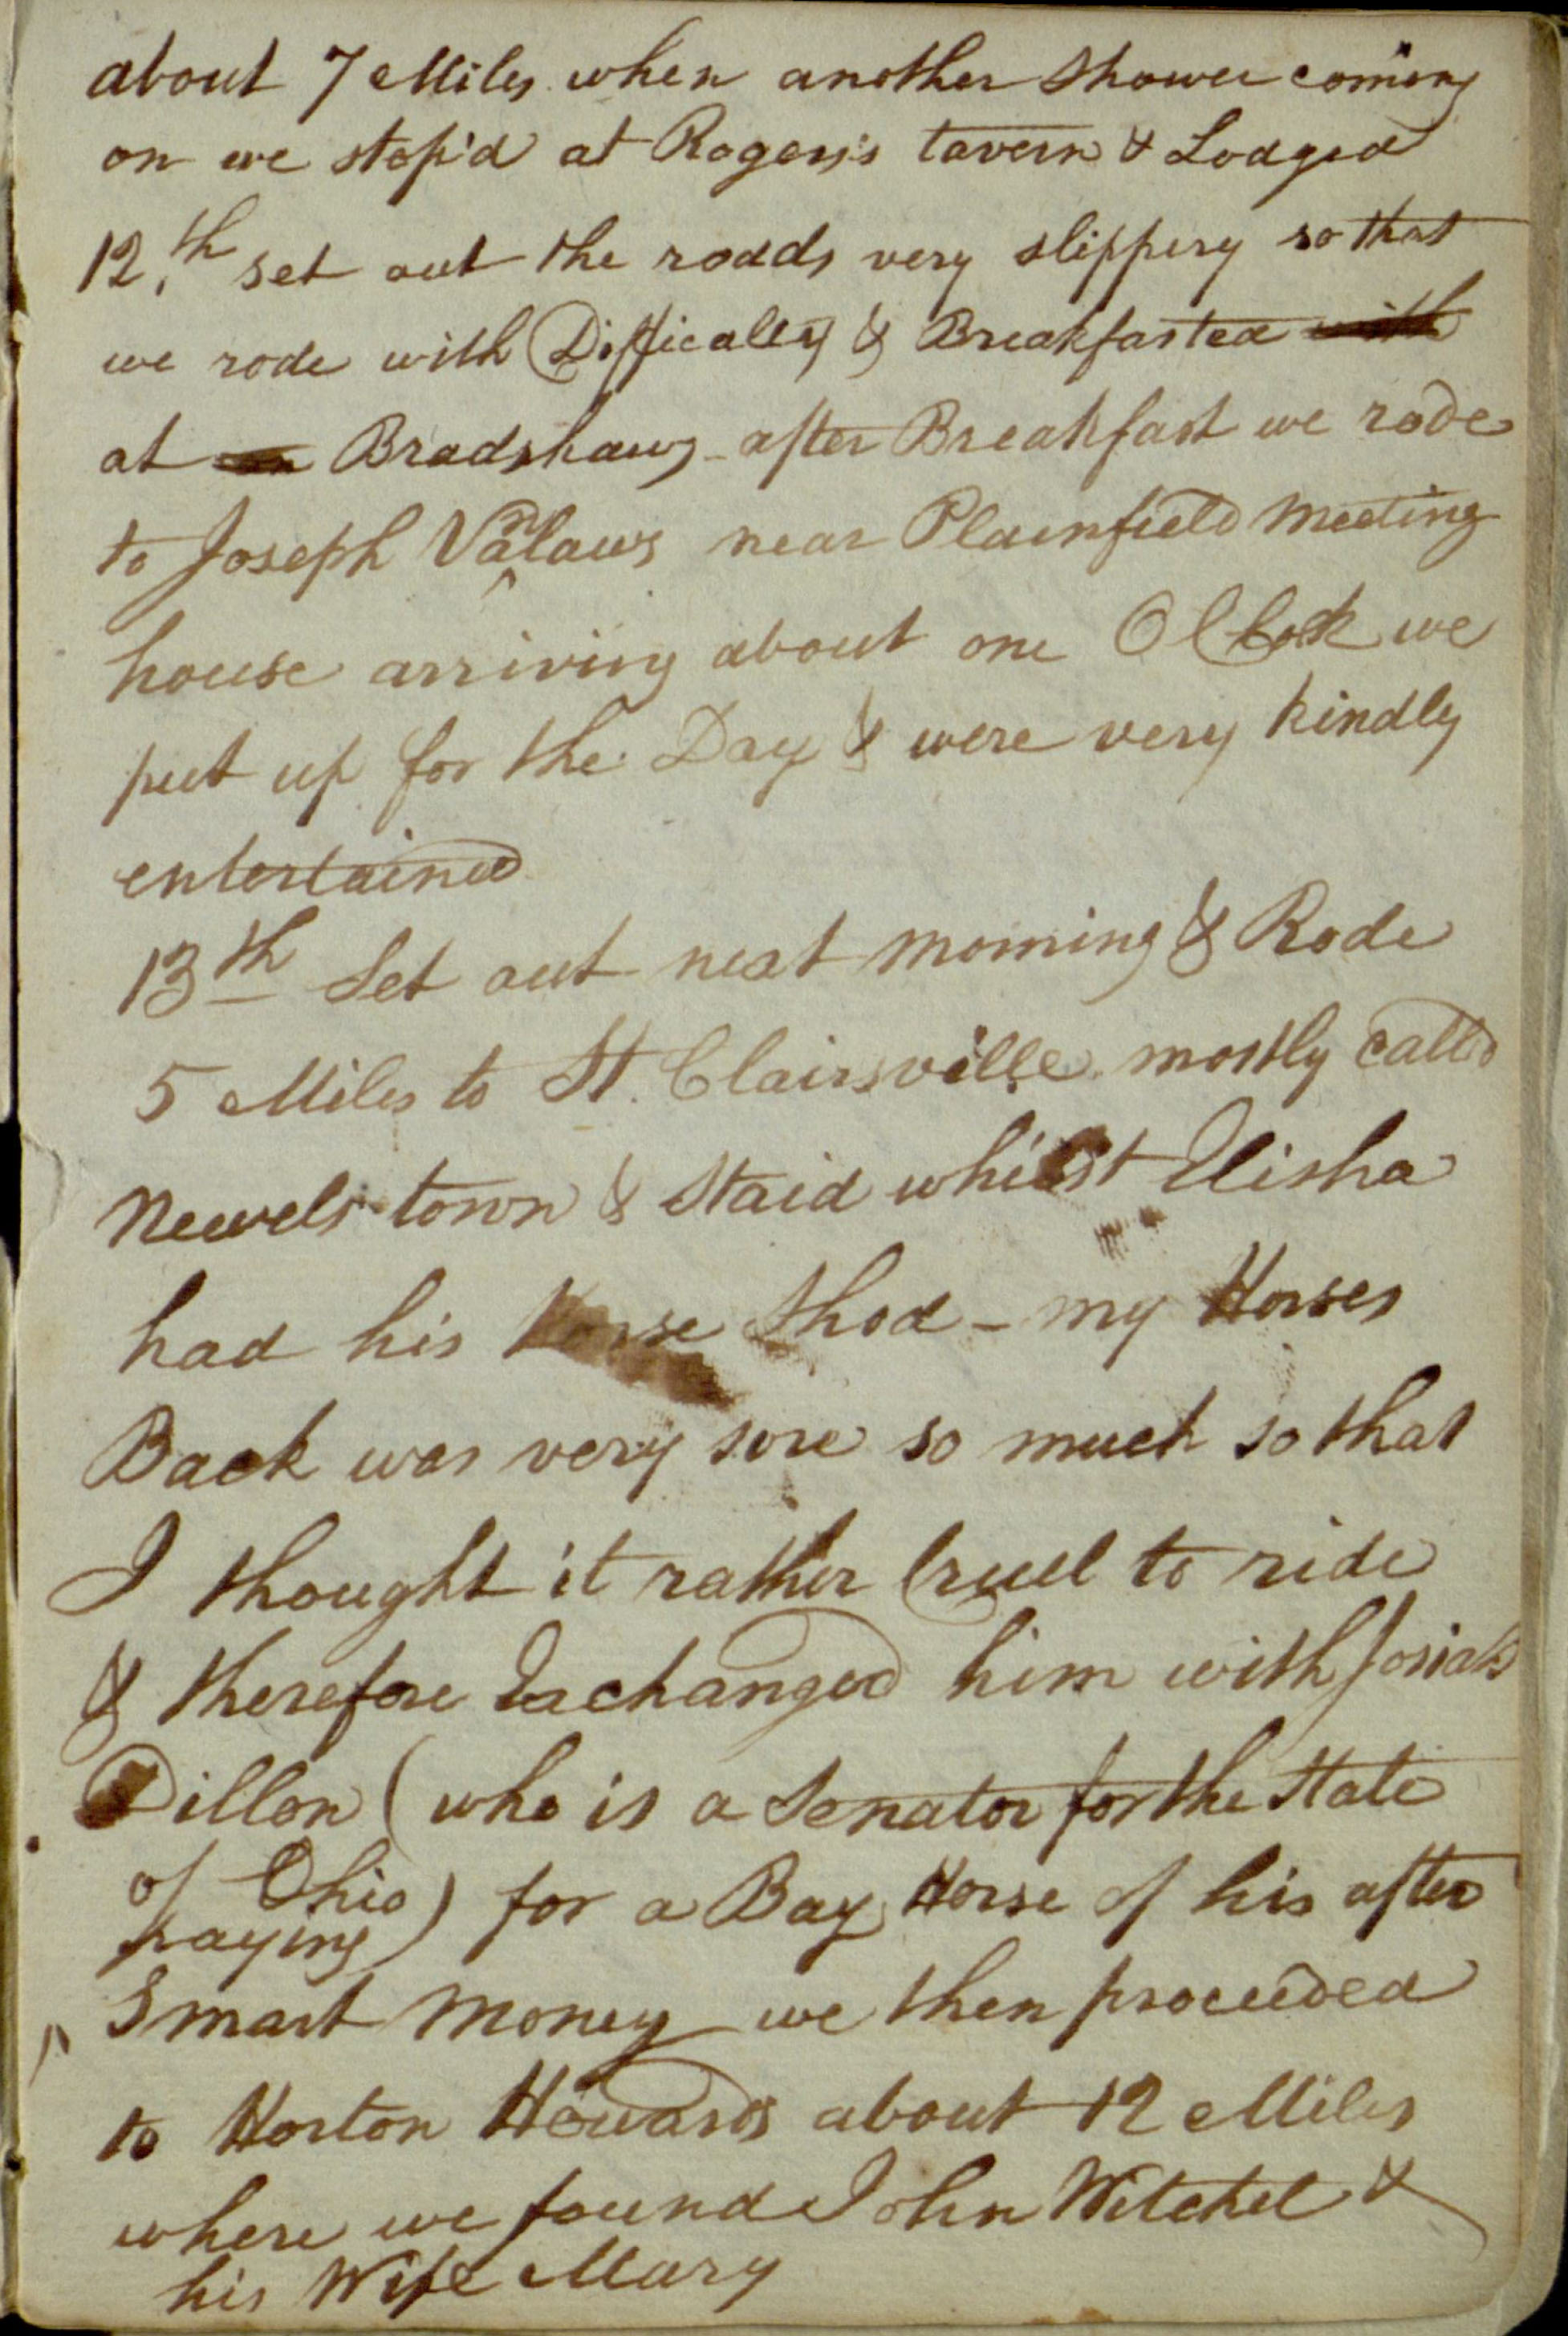 about 7 Miles when another shower coming
on we stop'd at Rogers's tavern & Lodged
12th set out the roads very slippery so that
we rode with Difficalty & Breakfasted with
at Bradshaws - after Breakfast we rode
to Joseph Vanlaws near Plainfield meeting
house arriving about one OClock we
put up for the Day & were very kindly
entertained
13th Set out next morning & Rode
5 Miles to St. Clairsville mostly called
Newels town & Staid whilst Elisha
had his Horse Shod - my Horses
Back was very sore so much so that
I thought it rather Cruel to ride
& therefore Exchanged him with Josiah
Dillon (who is a Senator for the State
of Ohio) for a Bay Horse of his after
paying
Smart Money we then proceeded
to Horton Howards about 12 Miles
where we found John Witchel &
his Wife Mary